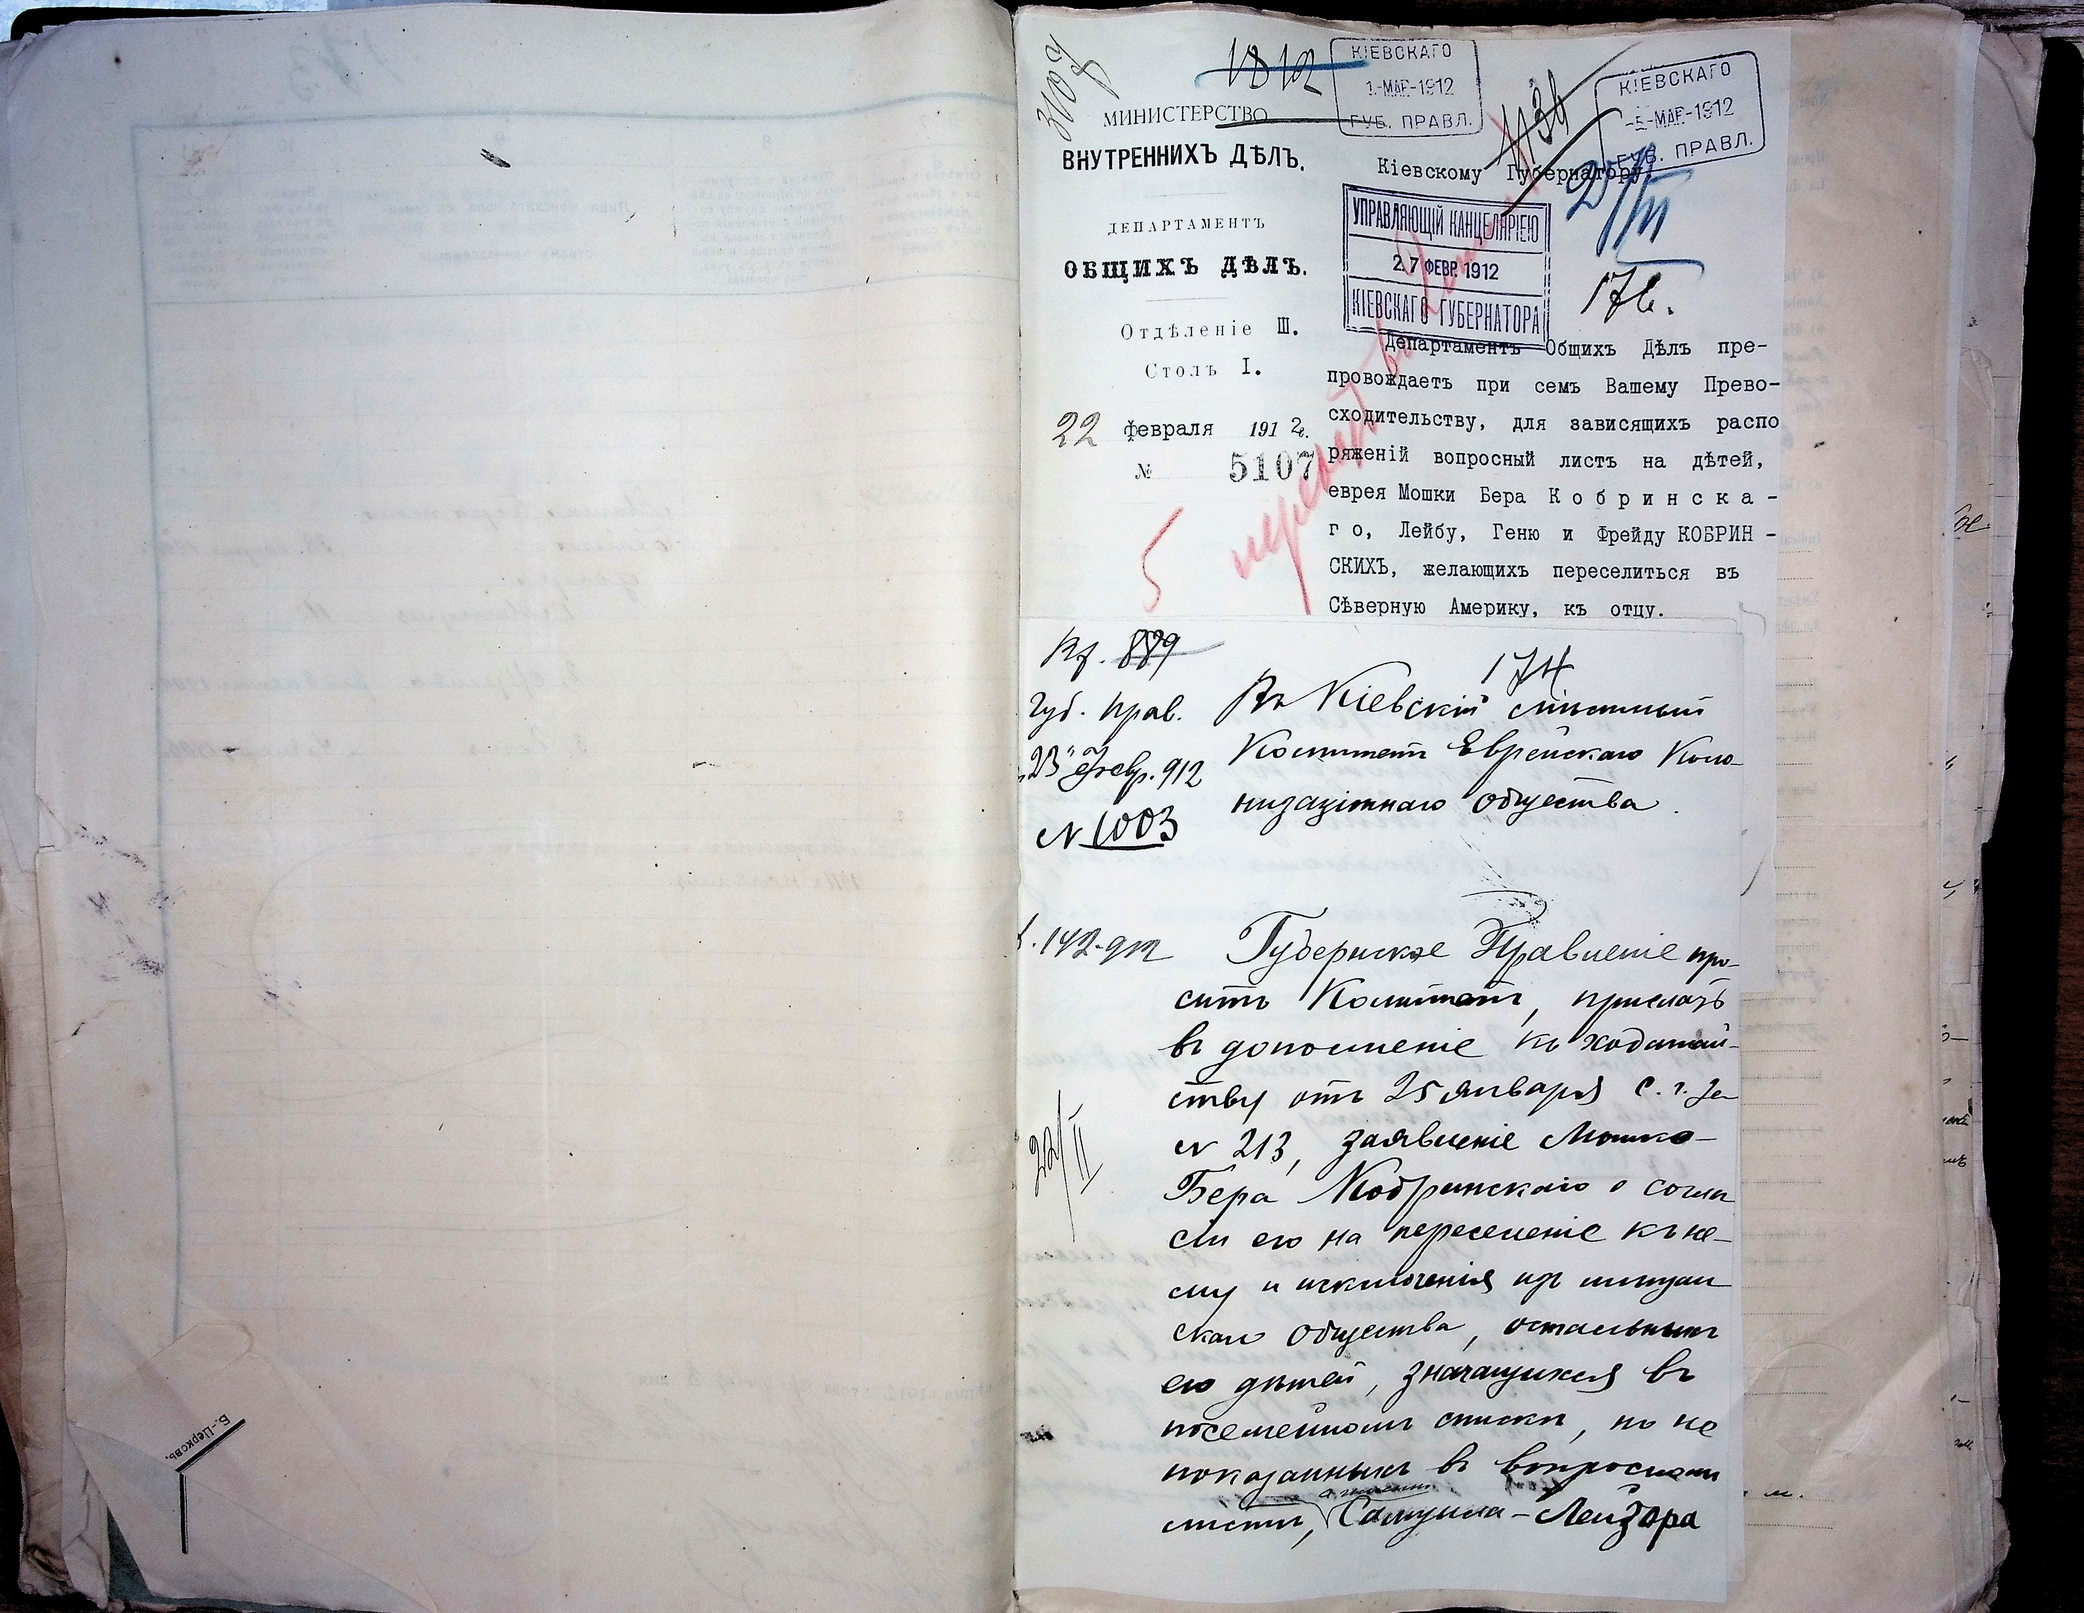 1812
КІЕВСКАГО
1-МАР-1912
ГУБ. ПРАВЛ.
КІЕВСКАГО
-5-МАР-1912
ГУБ. ПРАВЛ.
МИНИСТЕРСТВО
ВНУТРЕННИХЪ ДѢЛЪ.
ДЕПАРТАМЕНТЪ
ОБЩИХЪ ДѢЛЪ.
Отдѣленіе III.
Столъ I.
22 февраля 1912 г.
№ 5107
5
Кіевскому Губернатору
УПРАВЛЯЮЩІЙ КАНЦЕЛЯРІЕЮ
27 ФЕВР. 1912
КІЕВСКАГО ГУБЕРНАТОРА
Департаментъ Общихъ Дѣлъ пре-
провождаетъ при семъ Вашему Прево-
сходительству, для зависящихъ распо
ряженій вопросный листъ на дѣтей,
еврея Мошки Бера Кобринска-
го, Лейбу, Геню и Фрейду КОБРИН-
СКИХЪ, желающихъ переселиться въ
Сѣверную Америку, къ отцу.
889
Губ. Прав.
23 Февр. 912
№ 1003
174
Въ Кіевскій мѣстный
Комитетъ Еврейскаго Коло-
низаціоннаго общества.
142-912
22/II
Губернское Правленіе про-
ситъ Комитетъ, прислать
въ дополненіе къ ходатай-
ству отъ 25 января с. г. за
№ 213, заявленіе Мошко-
Бера Кобринскаго о согла
сіи его на переселеніе къ не-
му и исключенія изъ мѣщан
скаго общества, остальныхъ
его дѣтей, значащихся въ
посемейномъ спискѣ, но не
показанныхъ въ вопросномъ
листѣ, Самуила-Лейзора
Б.-Церковь.